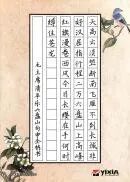 天高云淡望断南飞雁不到长城非
好汉屈指行程二万六盘山上高峰
红旗漫卷西风今日长缨在手何时
缚住苍龙
毛主席清平乐六盘山
yixia